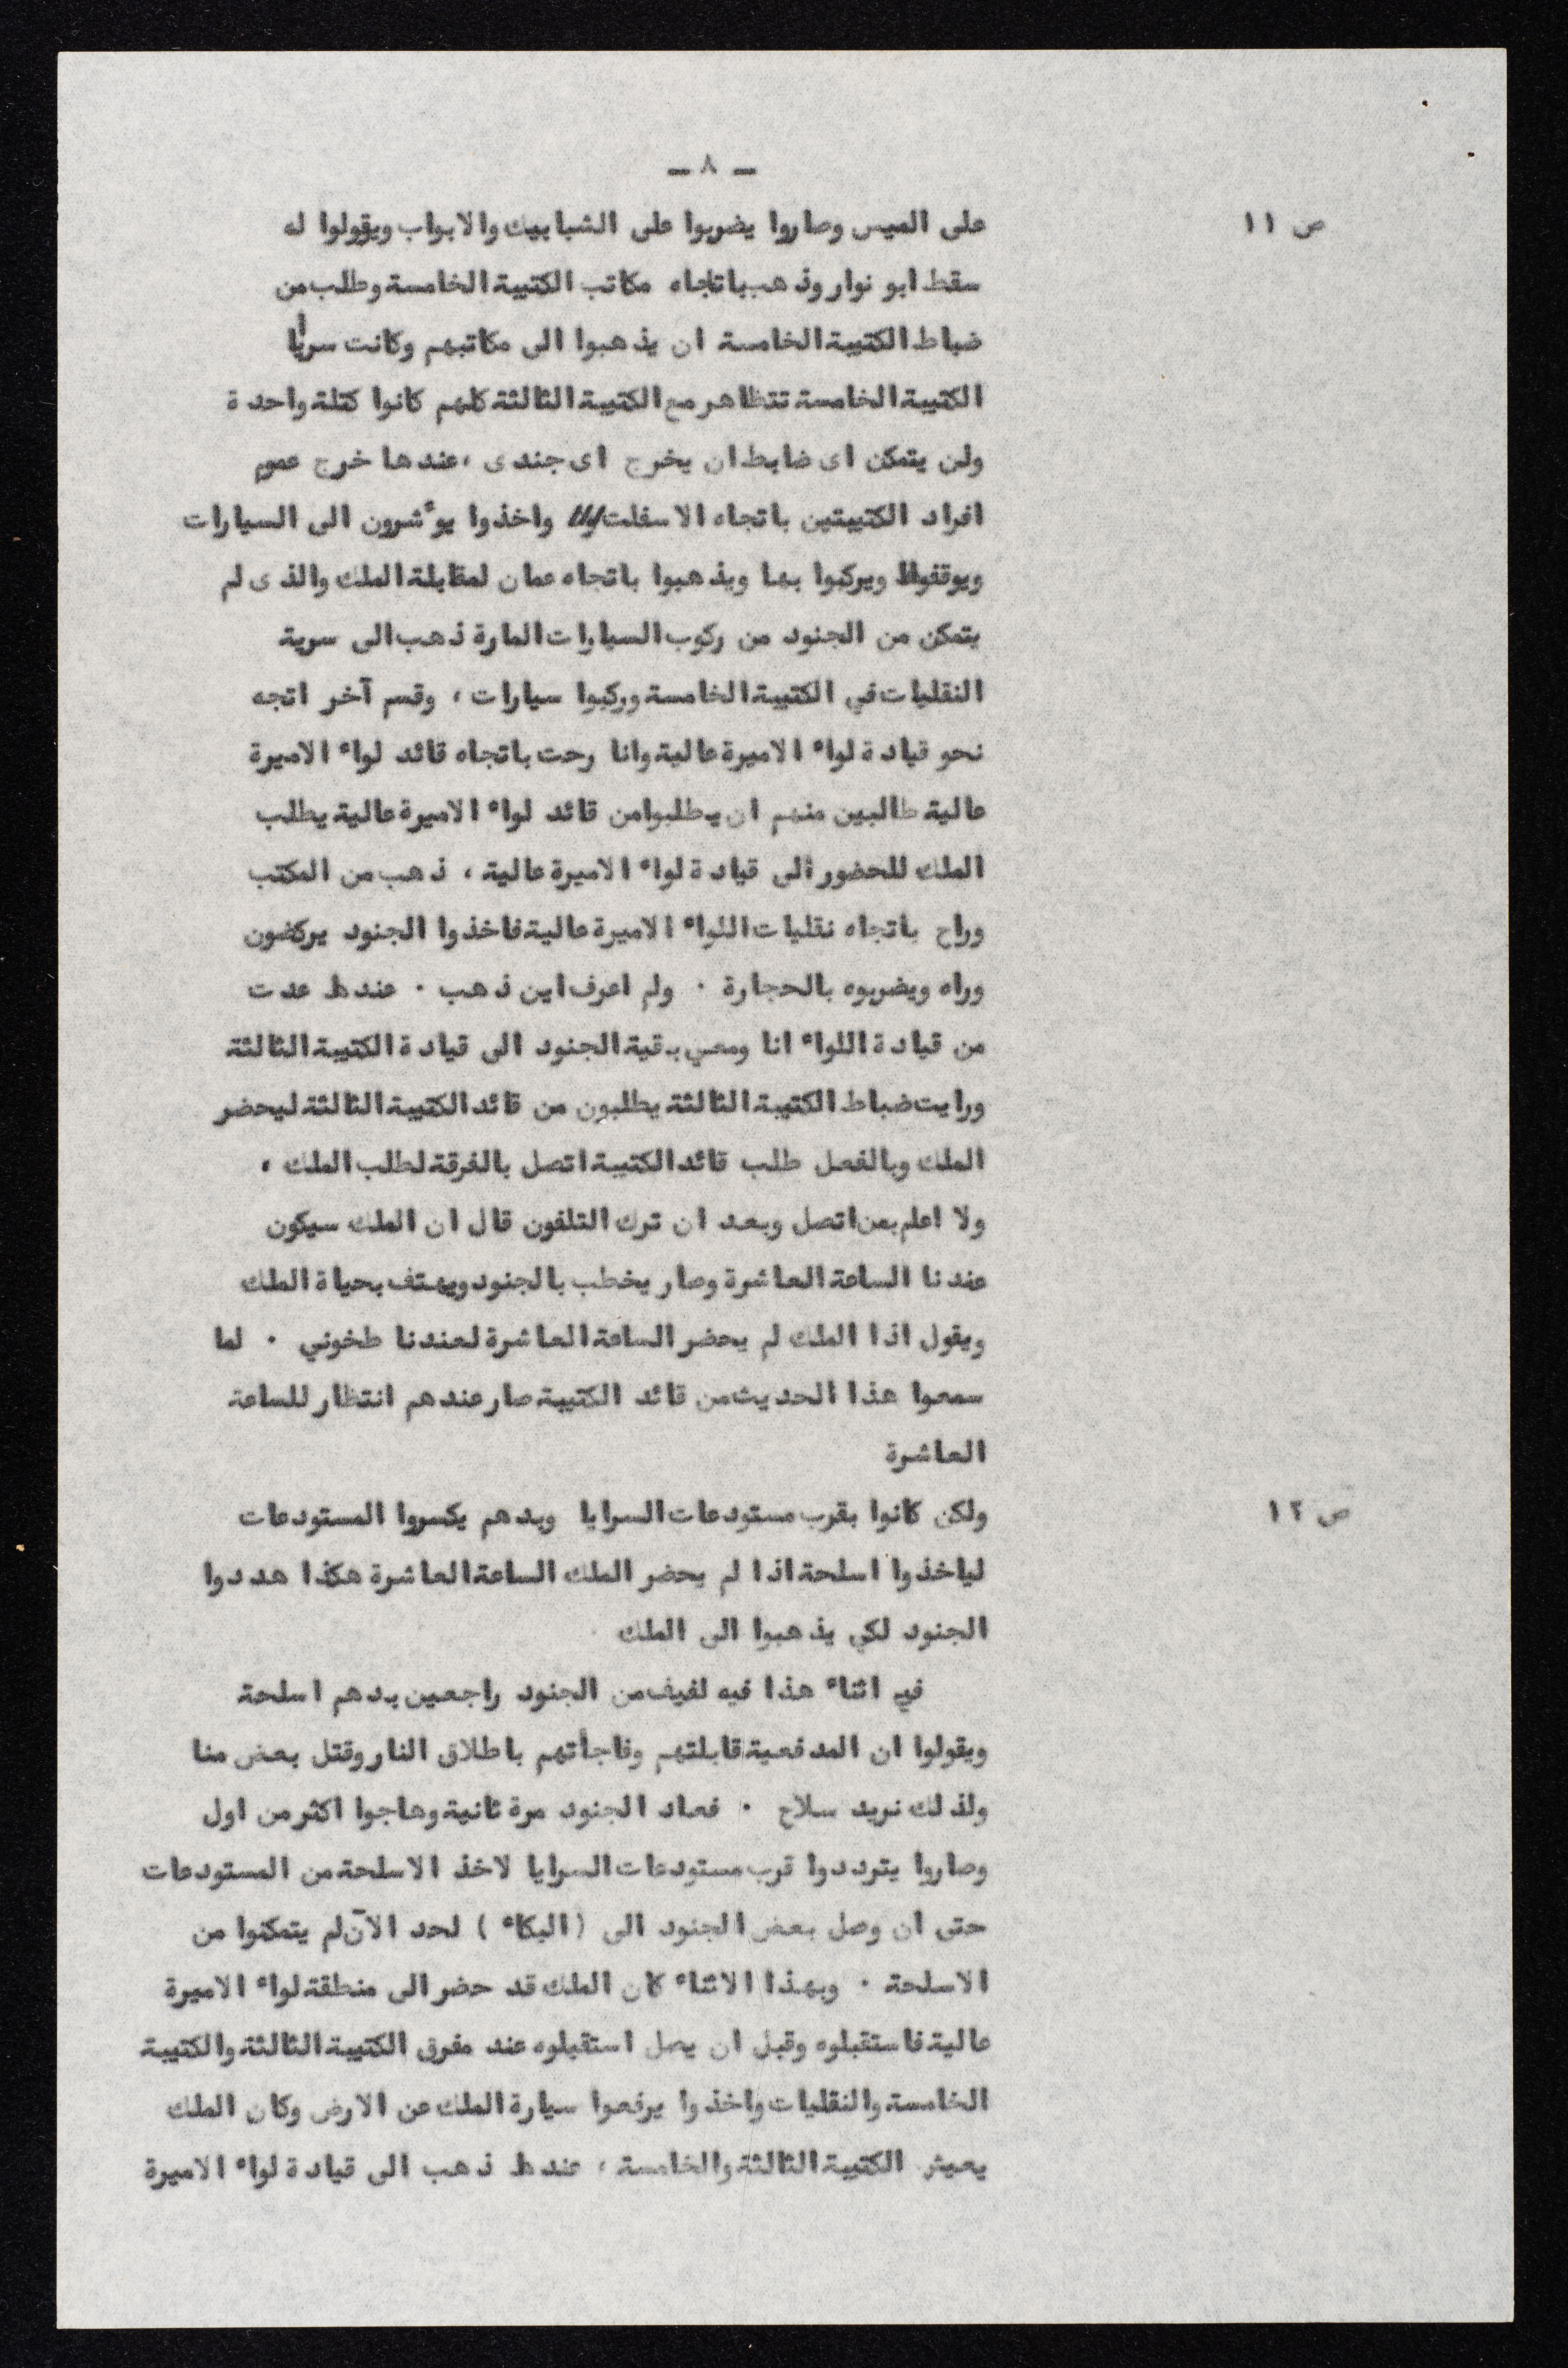 — ٨ —
ص ١١
على الميس وصاروا يضربوا على الشبابيك والابواب ويقولوا له
سقط ابو نوار وذهب باتجاه مكاتب الكتيبة الخامسة وطلب من
ضباط الكتيبة الخامسة ان يذهبوا الى مكاتبهم وكانت سرايا
الكتيبة الخامسة تتظاهر مع الكتيبة الثالثة كلهم كانوا كتلة واحدة
ولن يتمكن اى ضابط ان يخرج اى جندى ، عندها خرج عموم
افراد الكتيبتين باتجاه الاسفلت واخذوا يوٴشرون الى السيارات
ويوقفوا ويركبوا بها ويذهبوا باتجاه عمان لمقابلة الملك والذى لم
يتمكن من الجنود من ركوب السيارات المارة ذهب الى سرية
النقليات في الكتيبة الخامسة وركبوا سيارات ، وقسم آخر اتجه
نحو قيادة لواء الاميرة عالية وانا رحت باتجاه قائد لواء الاميرة
عالية طالبين منهم ان يطلبوا من قائد لواء الاميرة عالية يطلب
الملك للحضور الى قيادة لواء الاميرة عالية ، ذهب من المكتب
وراح باتجاه نقليات اللواء الاميرة عالية فاخذوا الجنود يركضون
وراه ويضربوه بالحجارة . ولم اعرف اين ذهب . عندها عدت
من قيادة اللواء انا ومعي بقية الجنود الى قيادة الكتيبة الثالثة
ورايت ضباط الكتيبة الثالثة يطلبون من قائد الكتيبة الثالثة ليحضر
الملك وبالفعل طلب قائد الكتيبة اتصل بالفرقة لطلب الملك ،
ولا اعلم بمن اتصل وبعد ان ترك التلفون قال ان الملك سيكون
عندنا الساعة العاشرة وصار يخطب بالجنود ويهتف بحياة الملك
ويقول اذا الملك لم يحضر الساعة العاشرة لعندنا طخوني . لما
سمعوا هذا الحديث من قائد الكتيبة صار عندهم انتظار للساعة
العاشرة
ص ١٢
ولكن كانوا بقرب مستودعات السرايا وبدهم يكسروا المستودعات
لياخذوا اسلحة اذا لم يحضر الملك الساعة العاشرة هكذا هددوا
الجنود لكي يذهبوا الى الملك
في اثناء هذا فيه لفيف من الجنود راجعين بدهم اسلحة
ويقولوا ان المدفعية قابلتهم وفاجأتهم باطلاق النار وقتل بعض منا
ولذلك نريد سلاح . فعاد الجنود مرة ثانية وهاجوا اكثر من اول
وصاروا يترددوا قرب مستودعات السرايا لاخذ الاسلحة من المستودعات
حتى ان وصل بعض الجنود الى (البكاء) لحد الآن لم يتمكنوا من
الاسلحة . وبهذا الاثناء كان الملك قد حضر الى منطقة لواء الاميرة
عالية فاستقبلوه وقبل ان يصل استقبلوه عند مفرق الكتيبة الثالثة والكتيبة
الخامسة والنقليات واخذوا يرفعوا سيارة الملك عن الارض وكان الملك
يعيش الكتيبة الثالثة والخامسة ، عندها ذهب الى قيادة لواء الاميرة